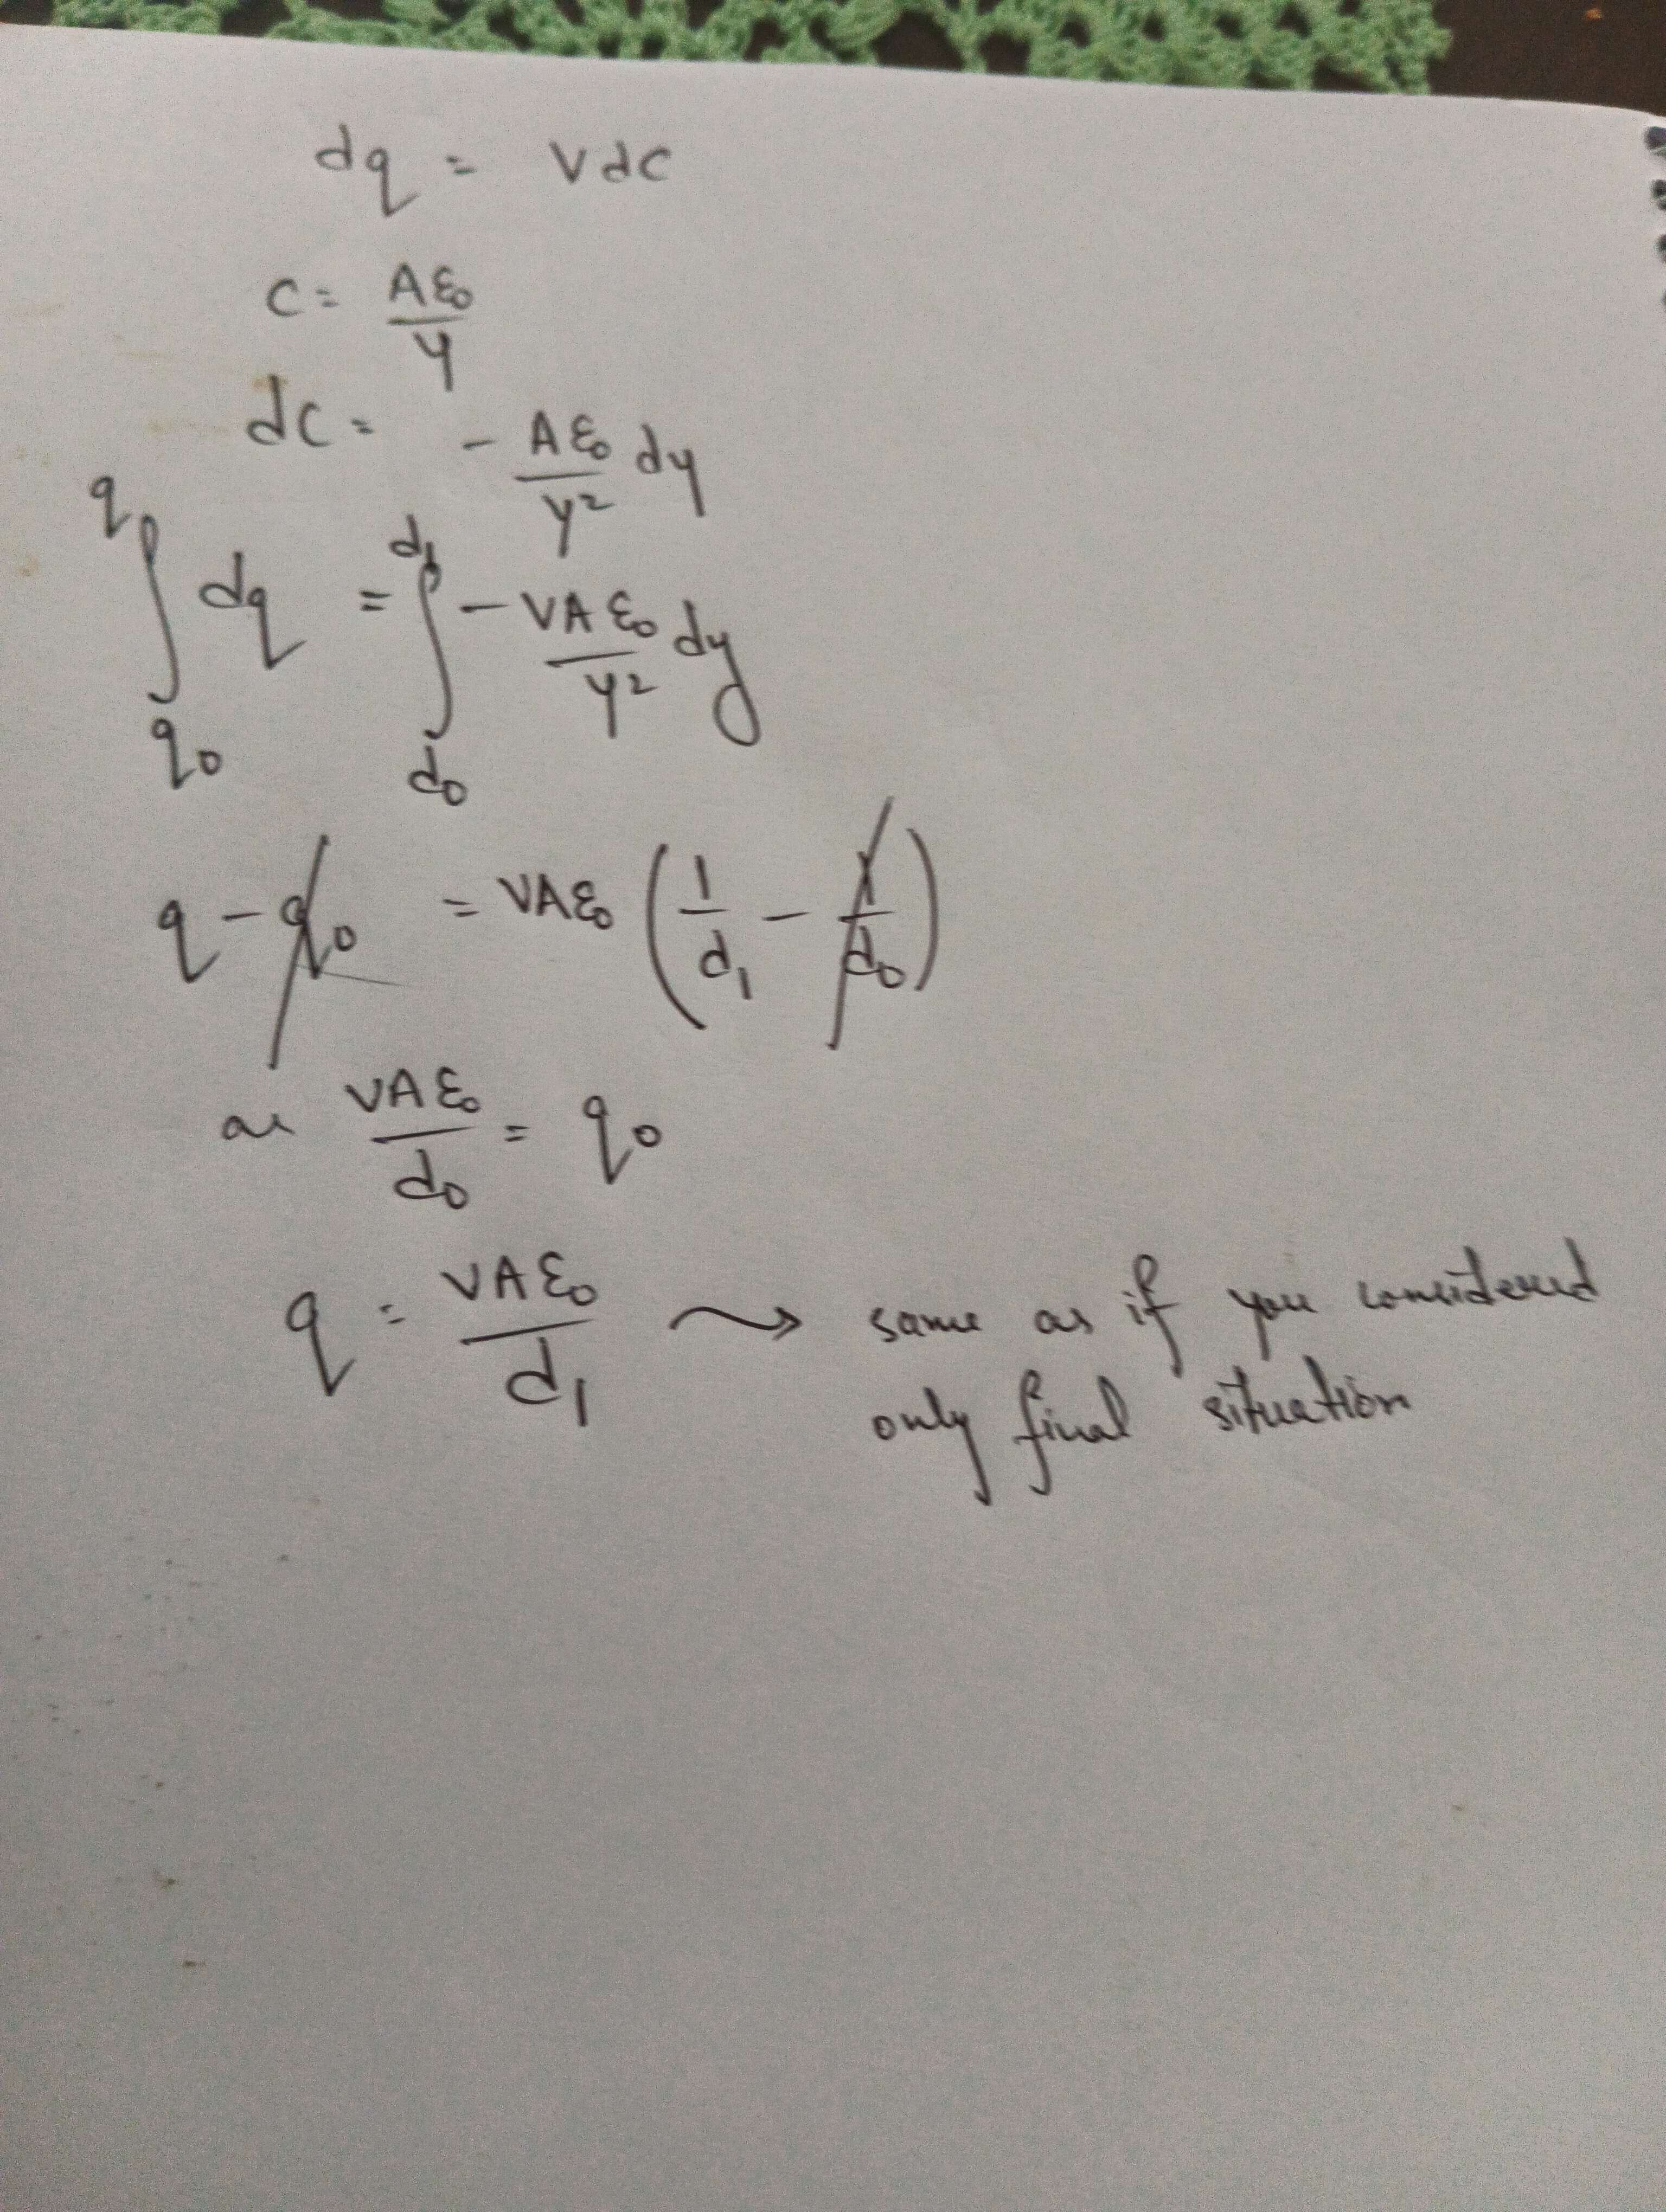 dq = VdC
C = Aε₀/y
dC = - Aε₀/y² dy
∫_{q₀}^{q} dq = ∫_{d₀}^{d₁} - VAε₀/y² dy
q - q₀ = VAε₀ (1/d₁ - 1/d₀)
as VAε₀/d₀ = q₀
q = VAε₀/d₁ ⇝ same as if you considered
only final situation